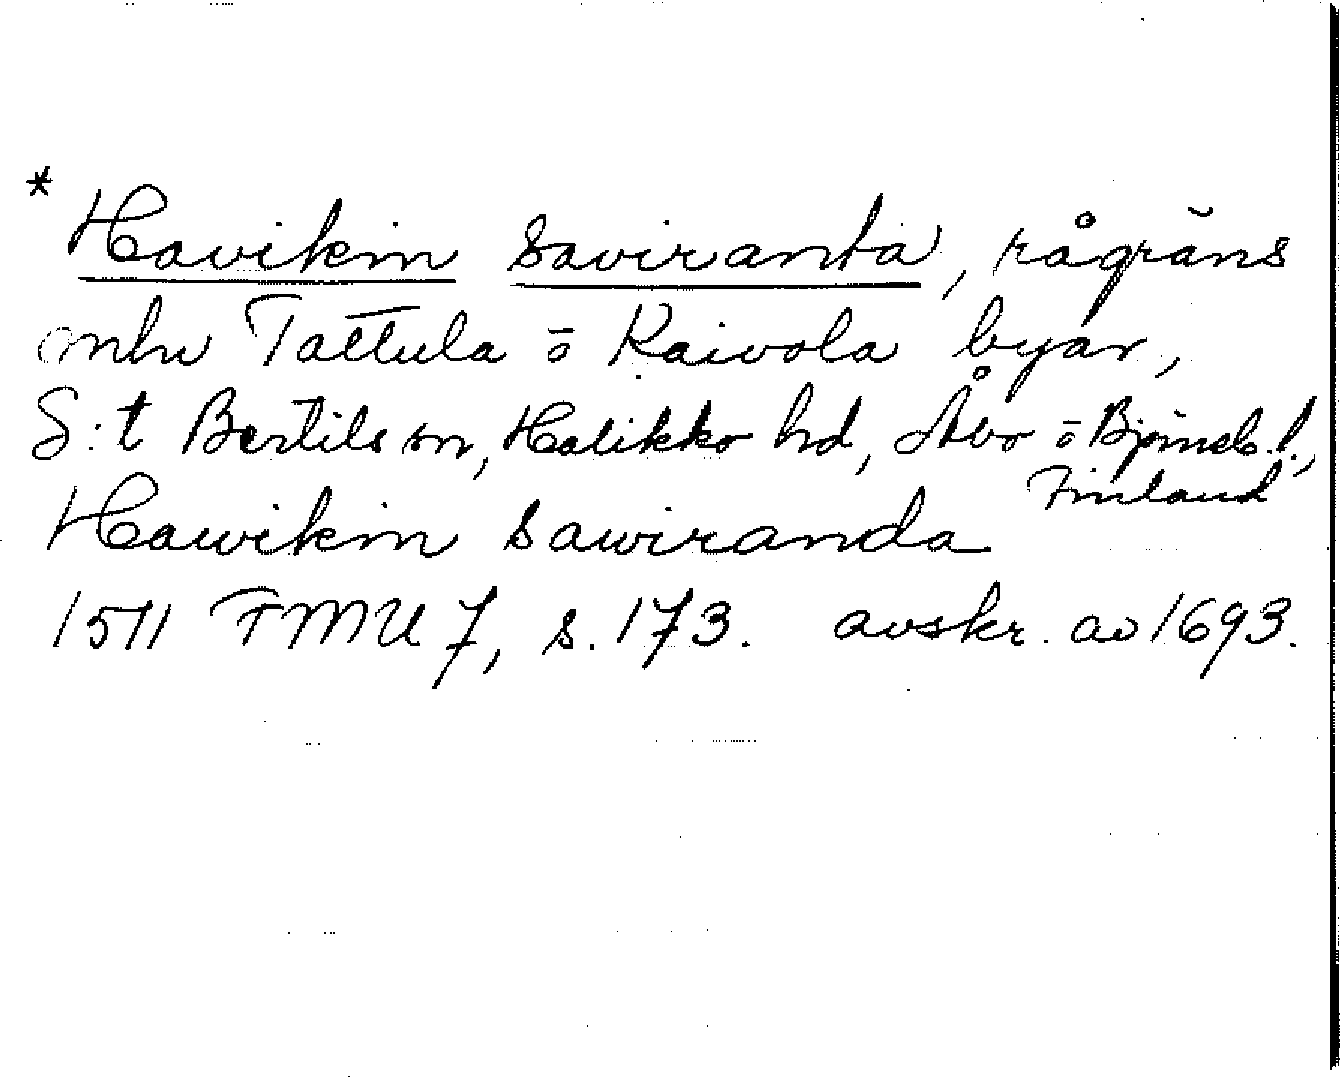 * Havikin saviranta, rågräns
mln Tattula ō Raivola byar,
S:t Bertils sn, Halikko hd, Åbo ō Björneb. l.,
Finland
Hawikin sawiranda
1511 FMU 7, s. 173. avskr. av 1693.